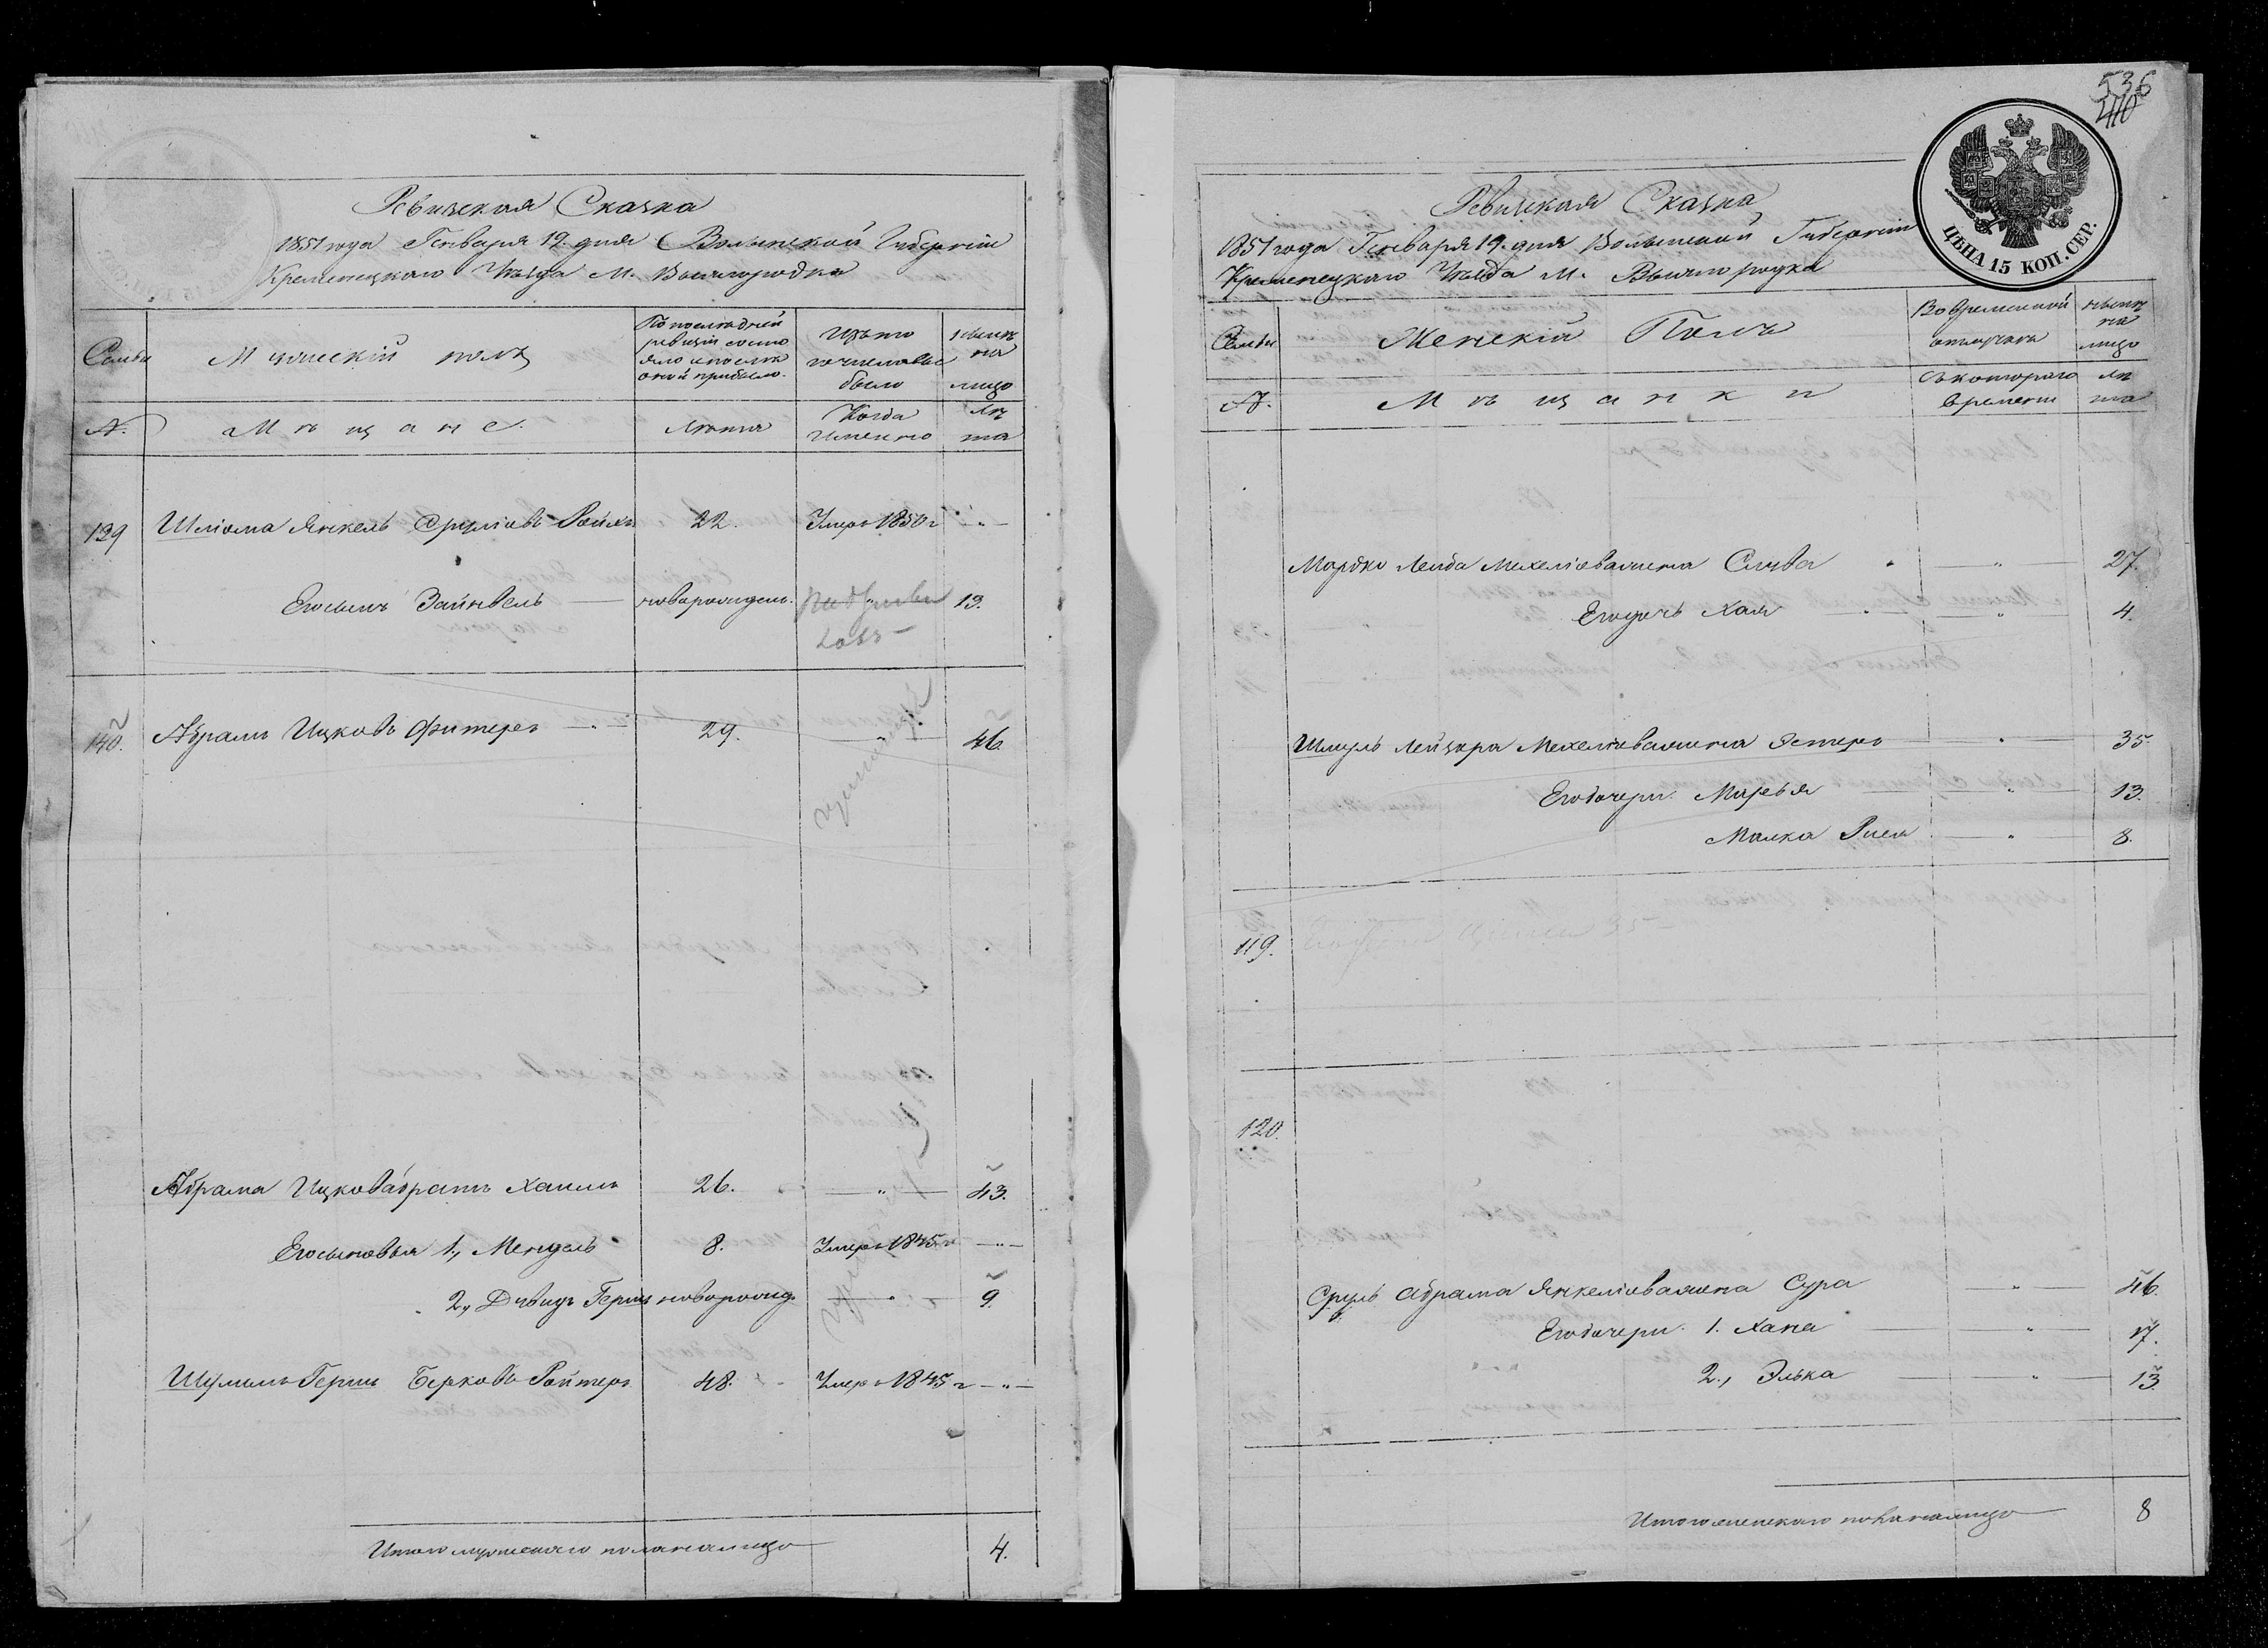 Ревизская Сказка
1851 года Генваря 19. дня Волынской Губерніи
Кременецкаго Уѣзда м. Вышгородка
Семьи
Мужескій полъ
По последней ревизіи состояло и после оной прибыло.
Изъ того числа выбыло
Нынѣ на лицо
№.
Мѣщане.
Лѣта
Когда именно
Лѣта
139 Шліома Янкель Сруліовъ 22. Умеръ 1850 г —"—
Его сынъ Зайнвель — новорожден. " 13.
140. Абрамъ Ицковъ Фитеръ —"— 29. —"— 46.
Абрама Ицкова братъ Хаимъ 26. —"— 43.
Его сыновья 1., Мендель 8. Умеръ 1845 г —"—
2., Давидъ Герш новорожд. —"— 9.
Шулимъ Герш Берковъ Ройтеръ 48. Умеръ 1845 г —"—
Итого мужескаго пола на лицо 4.
536
410
ЦѢНА 15 КОП. СЕР.
Ревизская Сказка
1851 года Генваря 19. дня Волынской Губерніи
Кременецкаго Уѣзда м. Вышгородка
Семьи
Женскій Полъ
Во временной отлучкѣ
Нынѣ на лицо
№.
Мѣщанки
Съ котораго времени
Лѣта
Мордко Лейба Мехеліова жена Слува —"— 27.
Его дочь Хая —"— 4.
Шмуль Лейзора Мехеліова жена Эстеръ —"— 35.
Его дочери. Марья —"— 13.
Малка Рися —"— 8.
119.
120.
Сруль Абрама Янкеліова жена Сура —"— 46.
Его дочери. 1. Хана —"— 17.
2., Элька —"— 13.
Итого женскаго пола на лицо 8